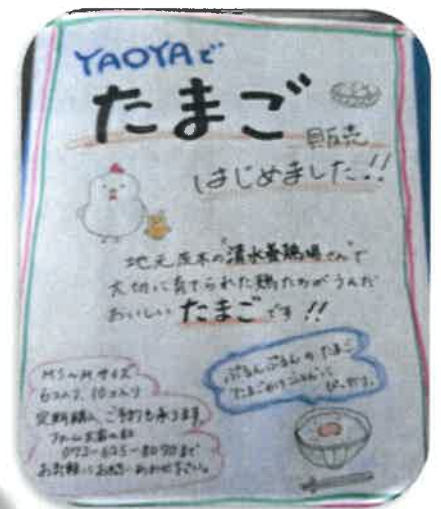 YAOYAで
たまご 販売
はじめました!!
地元茨木の"清水養鶏場さん"で
大切に育てられた鶏たちがうんだ
おいしい たまごです!!
MS〜Mサイズ
6コ入り、10コ入り
定期購入、ご予約も承ります
072-625-8090まで
お気軽にお問いあわせ下さい。
ぷるんぷるんのたまご
たまごかけごはんに
ぴったり。